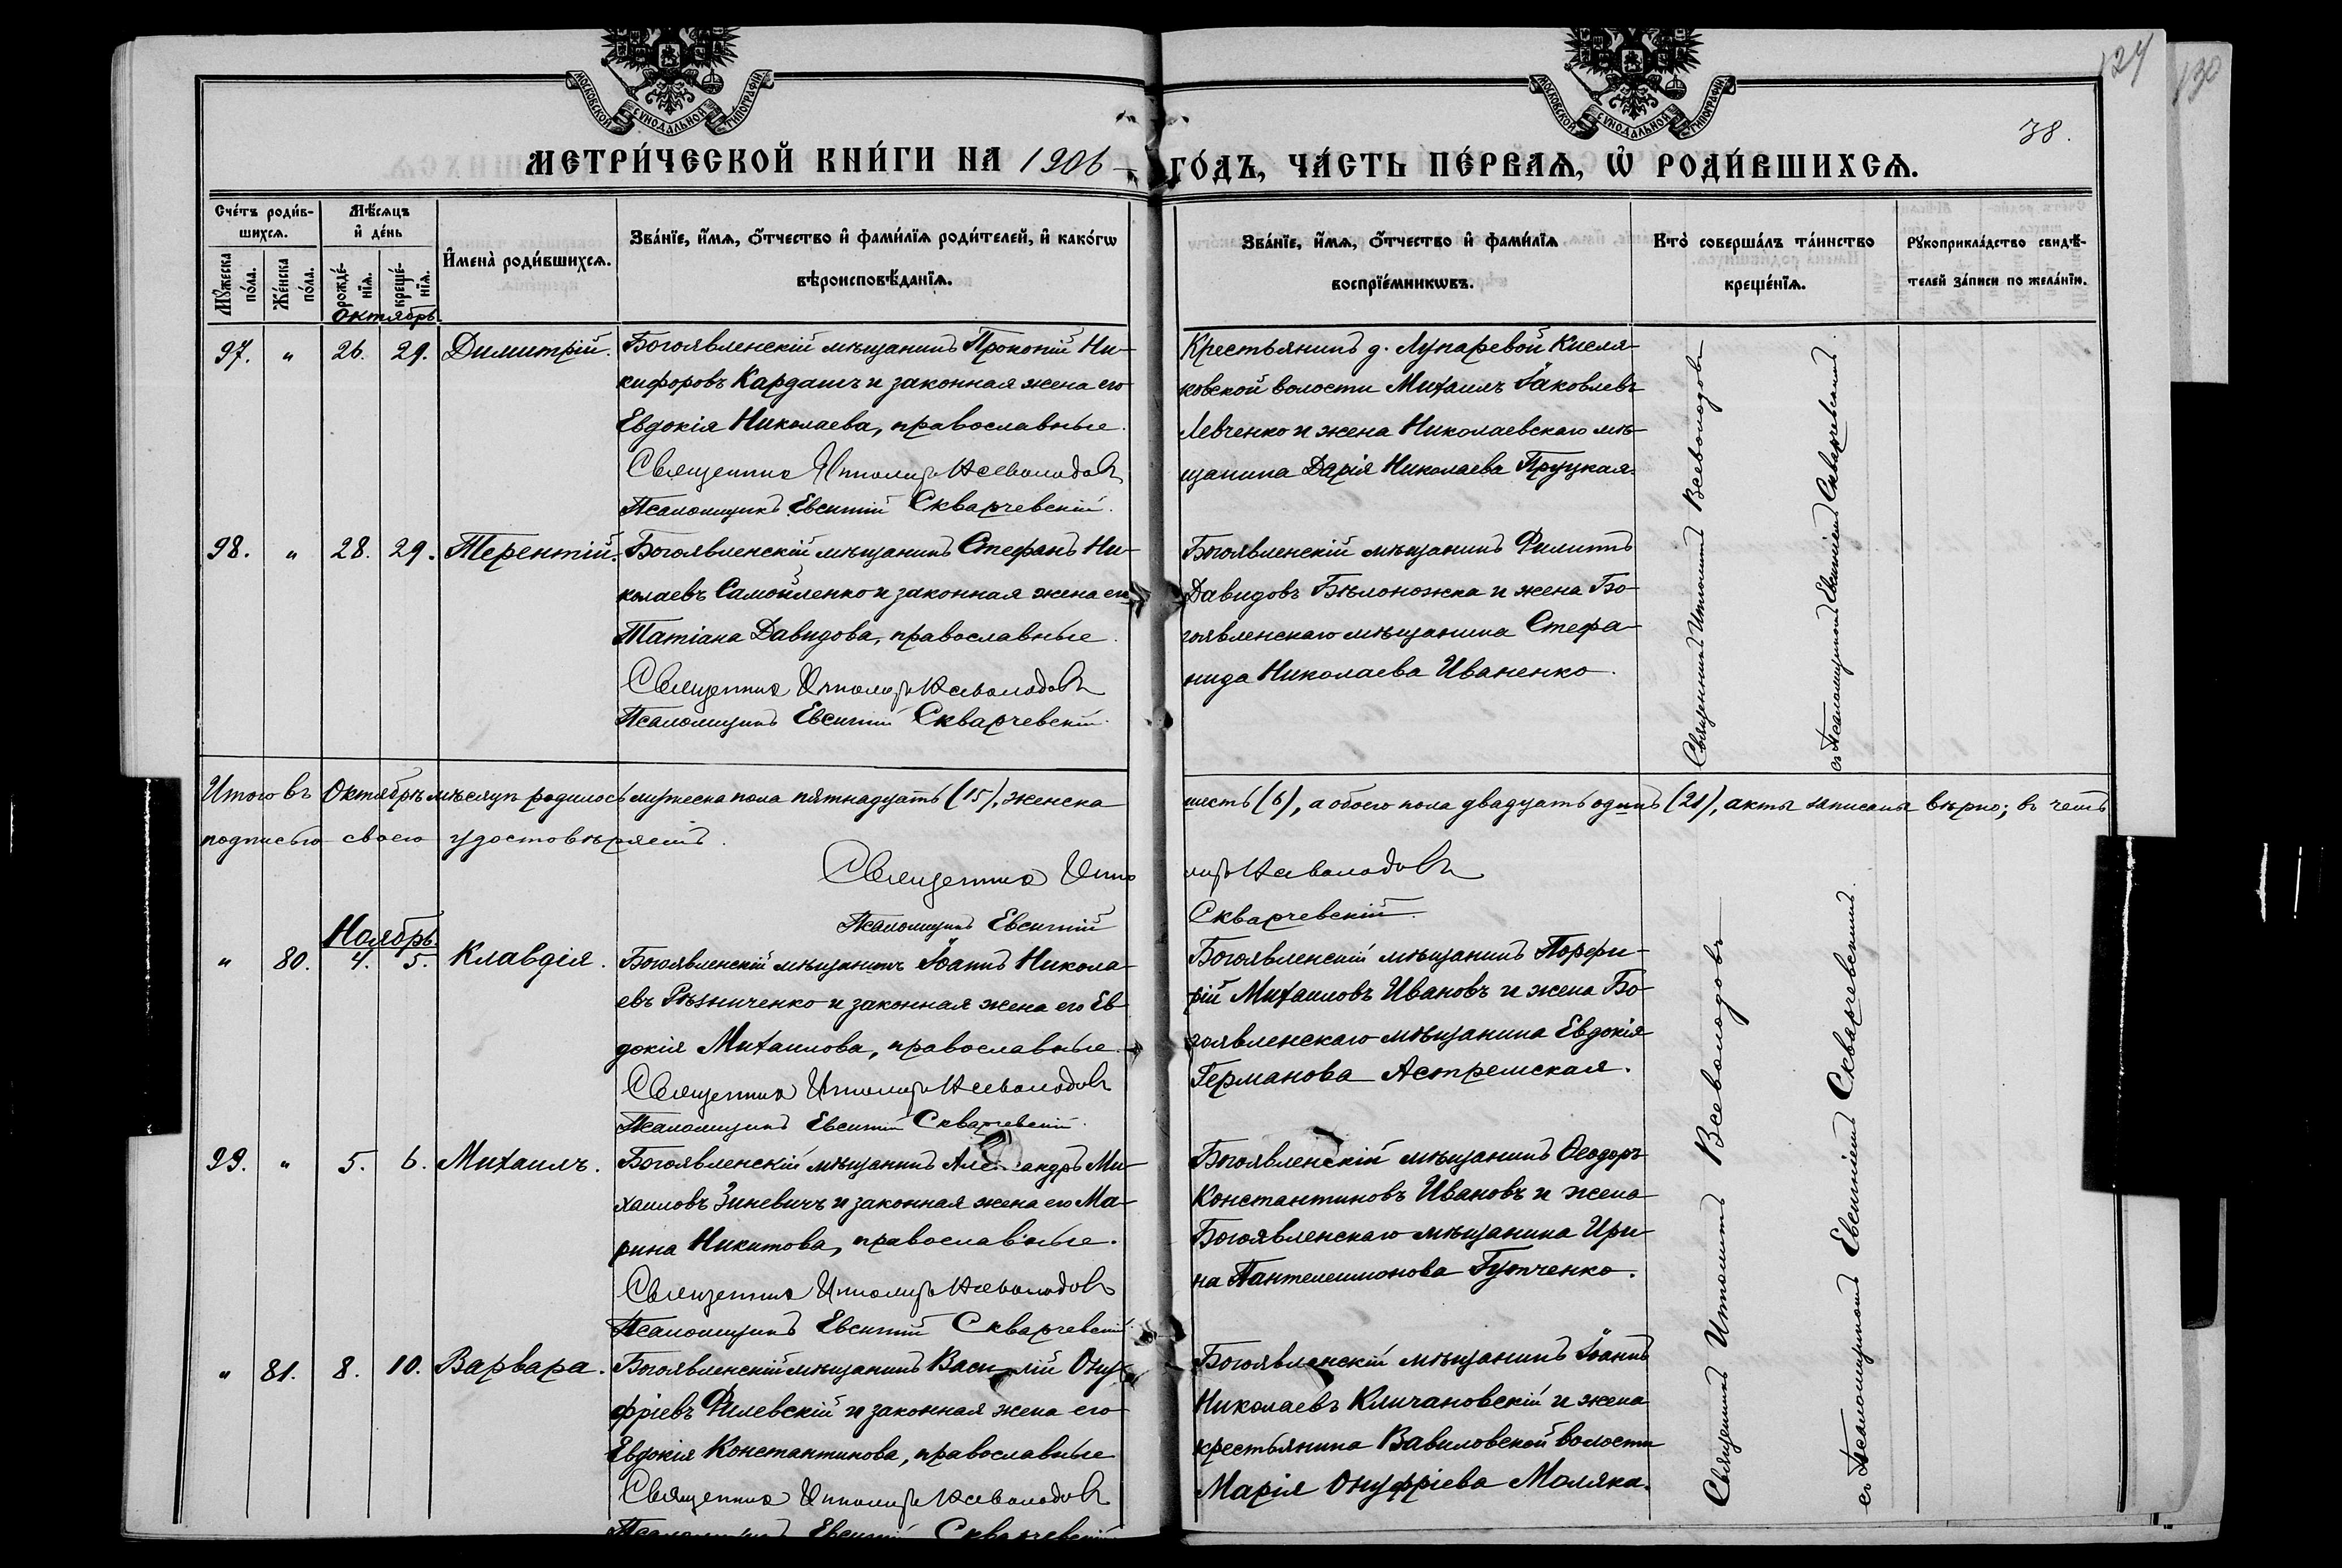 МОСКОВСКОЙ СѴНОДАЛЬНОЙ ТИПОГРАФІИ
МОСКОВСКОЙ СѴНОДАЛЬНОЙ ТИПОГРАФІИ
124
130
38.
МЕТРИ́ЧЕСКОЙ КНИ́ГИ НА 1906
ГО́ДЪ, ЧА́СТЬ ПЕ́РВАѦ, Ѽ РОДИ́ВШИХСѦ.
Сче́тъ роди́в-
шихсѧ.
Мꙋ́жеска
по́ла.
Же́нска
по́ла.
Мѣ́сѧцъ
и҆ де́нь
рожде́-
нїѧ.
креще́-
нїѧ.
И҆мена̀ роди́вшихсѧ.
Зва́нїе, и҆́мѧ, ѻ҆́тчество и҆ фами́лїѧ роди́телей, и҆ како́гѡ
вѣроисповѣ́данїѧ.
Зва́нїе, и҆́мѧ, ѻ҆́тчество и҆ фами́лїѧ
воспрїе́мникѡвъ.
Кто̀ соверша́лъ та́инство
креще́нїѧ.
Рꙋкоприкла́дство свидѣ́-
телей за́писи по жела́нїю.
Октябрь
97. „ 26. 29. Димитрій.
Богоявленскій мѣщанинъ Прокопій Ни-
кифоровъ Кардашъ и законная жена его
Евдокія Николаева, православные.
Священникъ Ипполитъ Всеволодовъ
Псаломщикъ Евсигній Скварчевскій.
Крестьянинъ д. Лупаревой Кисля-
ковской волости Михаилъ Іаковлевъ
Левченко и жена Николаевскаго мѣ-
щанина Дарія Николаева Пруцкая.
98. „ 28. 29. Терентій.
Богоявленскій мѣщанинъ Стефанъ Ни-
колаевъ Самойленко и законная жена его
Татіана Давидова, православные.
Священникъ Ипполитъ Всеволодовъ
Псаломщикъ Евсигній Скварчевскій.
Богоявленскій мѣщанинъ Филиппъ
Давидовъ Бѣлоножка и жена Бо-
гоявленскаго мѣщанина Стефа-
нида Николаева Иваненко.
Священникъ Ипполитъ Всеволодовъ
съ Псаломщикомъ Евсигніемъ Скварчевскимъ.
Итого въ Октябрѣ мѣсяцѣ родилось мужеска пола пятнадцать (15), женска
шесть (6), а обоего пола двадцать одинъ (21), акты записаны вѣрно; въ чемъ
подписью своею удостовѣряемъ.
Священникъ Иппо
литъ Всеволодовъ
Псаломщикъ Евсигній
Скварчевскій.
Ноябрь.
„ 80. 4. 5. Клавдія.
Богоявленскій мѣщанинъ Іоаннъ Никола-
евъ Рѣзниченко и законная жена его Ев-
докія Михаилова, православные.
Священникъ Ипполитъ Всеволодовъ
Псаломщикъ Евсигній Скварчевскій.
Богоявленскій мѣщанинъ Порфи-
рій Михаиловъ Ивановъ и жена Бо-
гоявленскаго мѣщанина Евдокія
Германова Астремская.
99. „ 5. 6. Михаилъ.
Богоявленскій мѣщанинъ Александръ Ми-
хаиловъ Зиневичъ и законная жена его Ма-
рина Никитова, православные.
Священникъ Ипполитъ Всеволодовъ
Псаломщикъ Евсигній Скварчевскій.
Богоявленскій мѣщанинъ Ѳеодоръ
Константиновъ Ивановъ и жена
Богоявленскаго мѣщанина Ири-
на Пантелеимонова Гутченко.
„ 81. 8. 10. Варвара.
Богоявленскій мѣщанинъ Василій Ону-
фріевъ Филевскій и законная жена его
Евдокія Константинова, православные
Священникъ Ипполитъ Всеволодовъ
Псаломщикъ Евсигній Скварчевскій
Богоявленскій мѣщанинъ Іоаннъ
Николаевъ Кличановскій и жена
крестьянина Вавиловской волости
Марія Онуфріева Моляка.
Священникъ Ипполитъ Всеволодовъ
съ Псаломщикомъ Евсигніемъ Скварчевскимъ.